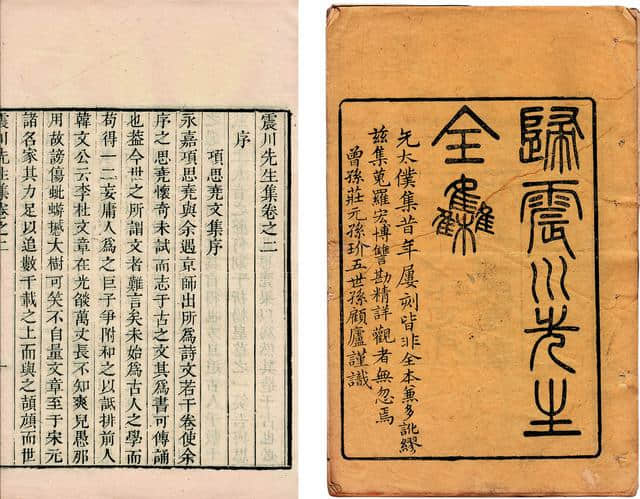 歸震川先生
全集
先太僕集昔年屢刻皆非全本兼多訛繆
茲集蒐羅宏博讐勘精詳觀者無忽焉
曾孫莊元孫玠五世孫顧廬謹識
震川先生集卷之二
序
項思堯文集序
永嘉項思堯與余遇京師出所爲詩文若干卷使余
序之思堯懷奇未試而志于古之文其爲書可傳誦
也葢今世之所謂文者難言矣未始爲古人之學而
苟得一二妄庸人爲之巨子爭附和之以詆排前人
韓文公云李杜文章在光燄萬丈長不知羣兒愚那
用故謗傷蚍蜉撼大樹可笑不自量文章至于宋元
諸名家其力足以追數千載之上而與之頡頏而世
震川先生集卷之二